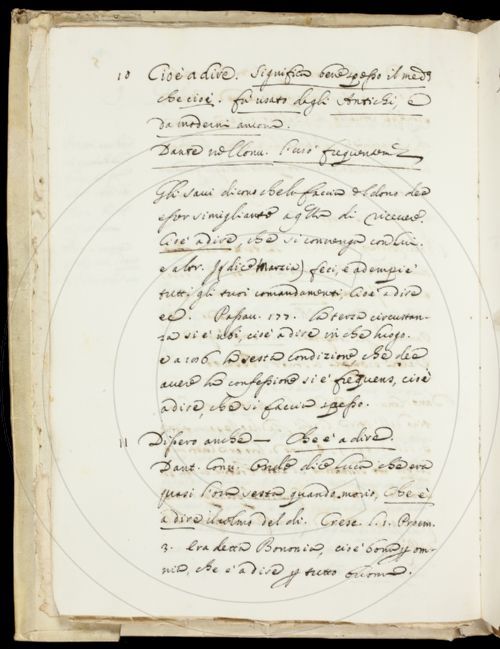 10 Cioè a dire. Significa bene spesso il med.o
che cioè. fu usato dagli Antichi, e
da moderni ancora.
Dante nel Conv. l'usò frequentem.e
Gli savi dicono che la faccia del dono dee
esser simigliante a q.lla di ricevere.
Cioè a dire, che si convenga con lui.
e alor. Io (dice Marzia) feci, e adempiè
tutti gli tuoi comandamenti, cioè a dire
ec. Passav. 177. la terza circustan-
za si è ubi, cioè a dire in che luogo.
e a 106 la sesta condizione che dee
avere la confessione si è frequens, cioè
a dire, che si faccia spesso.
11 Dissero anche — Che è a dire.
Dant. Conv. Onde dice Luca che era
quasi l'ora sesta quando morio, Che è
a dire il colmo del dì. Cresc. l. 1. Proem.
3. Era detta Bononia, cioè bona p om-
nia, che è a dire p tutto buona.